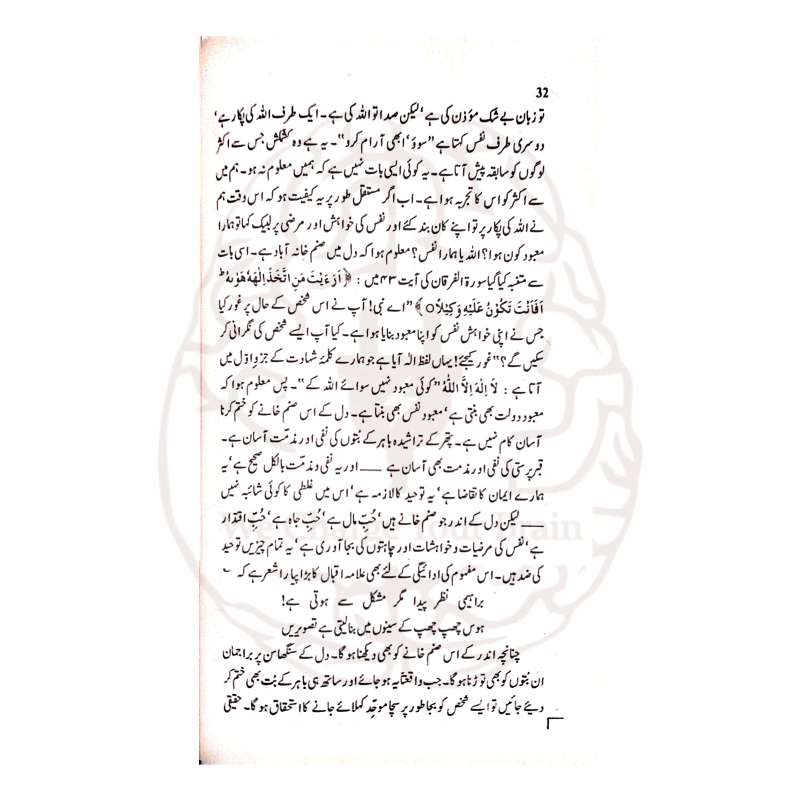 32
تو زبان بے شک مؤذن کی ہے‘ لیکن صدا تو اللہ کی ہے۔ ایک طرف اللہ کی پکار ہے‘
دوسری طرف نفس کہتا ہے ”سوؤ‘ ابھی آرام کرو“۔ یہ ہے وہ کشمکش جس سے اکثر
لوگوں کو سابقہ پیش آتا ہے۔ یہ کوئی ایسی بات نہیں ہے کہ ہمیں معلوم نہ ہو۔ ہم میں
سے اکثر کو اس کا تجربہ ہوا ہے۔ اب اگر مستقل طور پر یہ کیفیت ہو کہ اس وقت ہم
نے اللہ کی پکار پر تو اپنے کان بند کئے اور نفس کی خواہش اور مرضی پر لبیک کہا تو ہمارا
معبود کون ہوا؟ اللہ یا ہمارا نفس؟ معلوم ہوا کہ دل میں صنم خانہ آباد ہے۔ اسی بات
سے متنبہ کیا گیا سورۃ الفرقان کی آیت ۴۳ میں : ﴿اَرَءَیْتَ مَنِ اتَّخَذَ اِلٰھَهٗ ھَوٰىهُ ؕ
اَفَاَنْتَ تَکُوْنُ عَلَیْهِ وَکِیْلًا۝﴾ ”اے نبی! آپ نے اس شخص کے حال پر غور کیا
جس نے اپنی خواہش نفس کو اپنا معبود بنایا ہوا ہے۔ کیا آپ ایسے شخص کی نگرانی کر
سکیں گے؟“ غور کیجئے! یہاں لفظ الٰہ آیا ہے جو ہمارے کلمۂ شہادت کے جزوِ اوّل میں
آتا ہے : لَا اِلٰهَ اِلَّا اللّٰهُ ”کوئی معبود نہیں سوائے اللہ کے“۔ پس معلوم ہوا کہ
معبود دولت بھی بنتی ہے‘ معبود نفس بھی بنتا ہے۔ دل کے اس صنم خانے کو ختم کرنا
آسان کام نہیں ہے۔ پتھر کے تراشیدہ باہر کے بُتوں کی نفی اور مذمّت آسان ہے۔
قبر پرستی کی نفی اور مذمت بھی آسان ہے ــــــ اور یہ نفی و مذمّت بالکل صحیح ہے‘ یہ
ہمارے ایمان کا تقاضا ہے‘ یہ توحید کا لازمہ ہے‘ اس میں غلطی کا کوئی شائبہ نہیں
ــــــ لیکن دل کے اندر جو صنم خانے ہیں‘ حُبِّ مال ہے‘ حُبِّ جاہ ہے‘ حُبِّ اقتدار
ہے‘ نفس کی مرضیات و خواہشات اور چاہتوں کی بجا آوری ہے‘ یہ تمام چیزیں توحید
کی ضد ہیں۔ اس مفہوم کی ادائیگی کے لئے بھی علامہ اقبال کا بڑا پیارا شعر ہے کہ ؎
براہیمی نظر پیدا مگر مشکل سے ہوتی ہے!
ہوس چھپ چھپ کے سینوں میں بنا لیتی ہے تصویریں
چنانچہ اندر کے اس صنم خانے کو بھی دیکھنا ہو گا۔ دل کے سنگھاسن پر براجمان
ان بُتوں کو بھی توڑنا ہو گا۔ جب واقعتاً یہ ہو جائے اور ساتھ ہی باہر کے بُت بھی ختم کر
دیئے جائیں تو ایسے شخص کو بجا طور پر سچا موحّد کہلائے جانے کا استحقاق ہو گا۔ حقیقی
We Change Your Brain